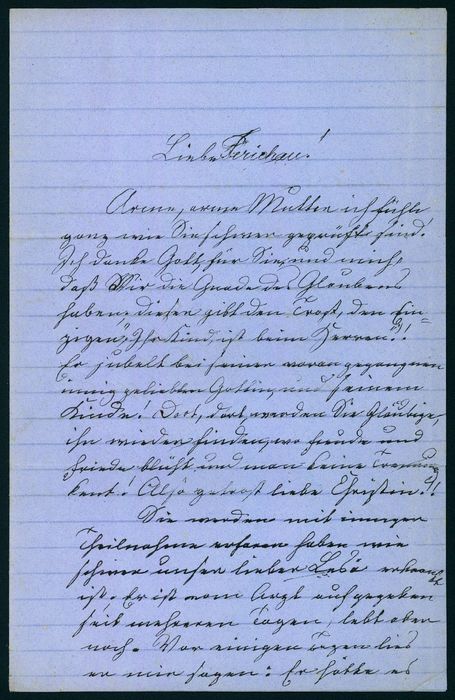 Liebe Frau!
Arme, arme Mutter ich fühle
ganz wie Sie schwer geprüft sind.
Ich danke Gott für Sie, und mich,
daß Wir die Gnade des Glaubens
haben, dieser gibt den Trost, den Ein-
zigen, Ihr Kind, ist beim Herren!!
Er jubelt bei seiner voran gegangnen
innig geliebten Gattin, und seinem
Kinde! Dort, dort, werden Sie Gläubige,
ihn wieder finden, wo Freude und
Friede blüht und man keine Trennung
kent! Also getrost liebe Christin!!
Sie werden mit inniger
Theilnahme erfaren haben wie
schwer unser lieber erkrankt
ist. Er ist vom Arzt aufgegeben
seit mehreren Tagen, lebt aber
noch. Vor einigen Tagen lies
er mir sagen: Er hätte es